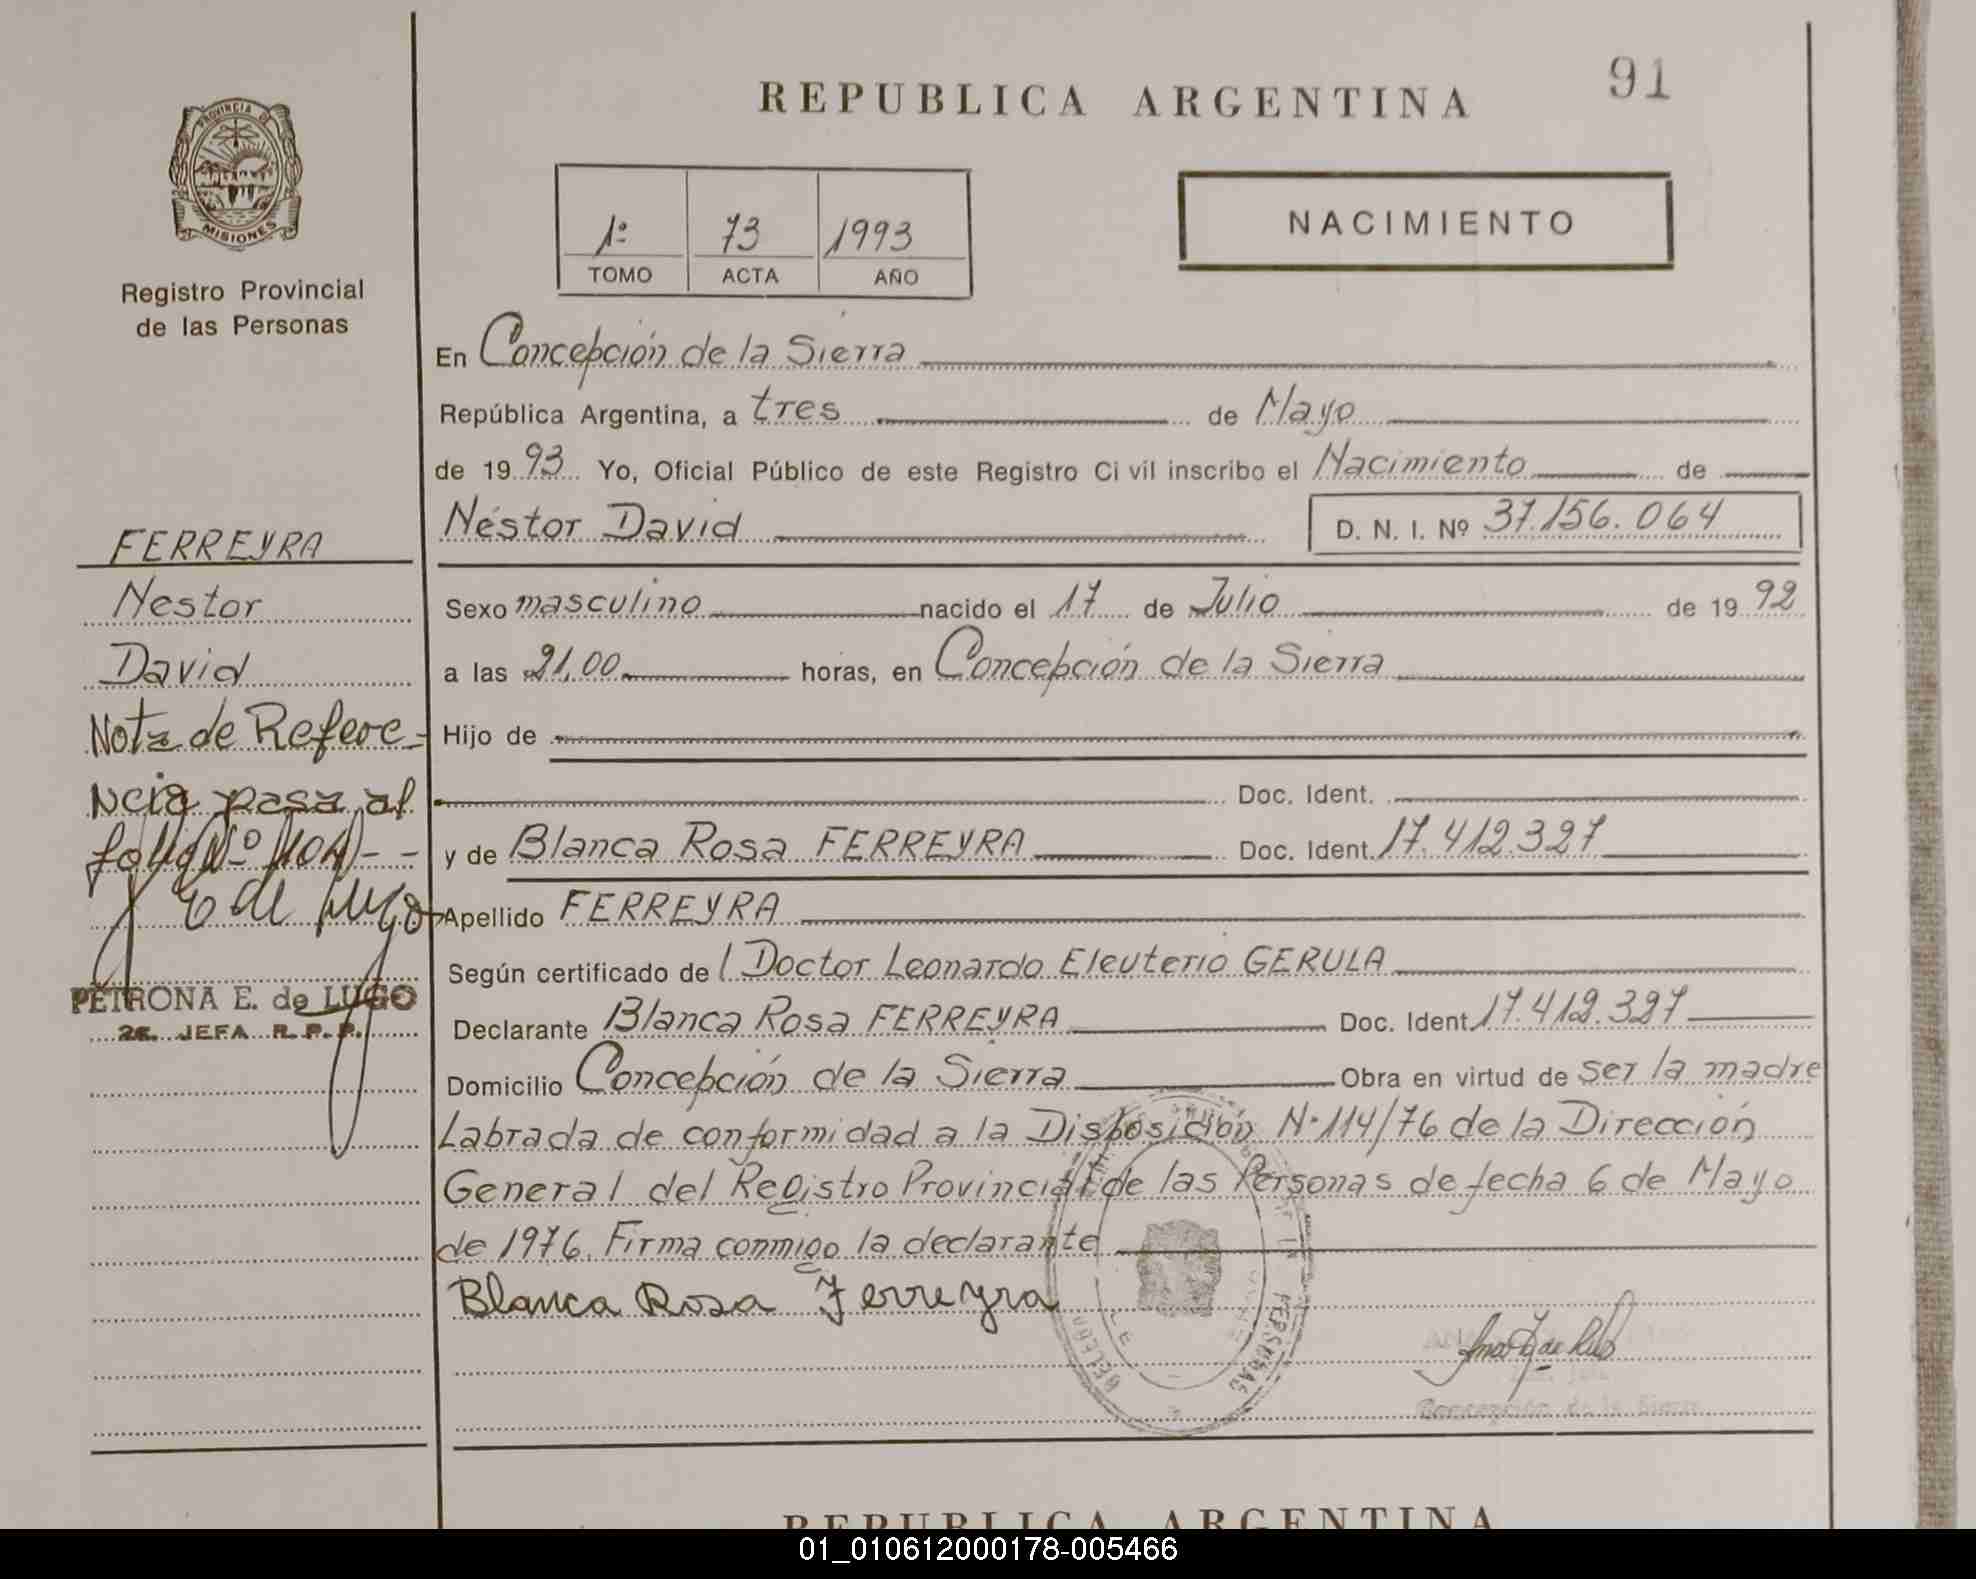 91
REPUBLICA ARGENTINA
PROVINCIA DE
MISIONES
Registro Provincial
de las Personas
1º 73 1993
TOMO ACTA AÑO
NACIMIENTO
En Concepción de la Sierra
República Argentina, a tres de Mayo
de 1993 Yo, Oficial Público de este Registro Civil inscribo el Nacimiento de
Néstor David D. N. I. Nº 37.156.064
FERREYRA
Nestor
David
Nota de Refere-
ncia pasa al
folio Nº 104 - -
E de Lugo
PETRONA E. de LUGO
2a. JEFA R. P. P.
Sexo masculino nacido el 17 de Julio de 1992
a las 21,00 horas, en Concepción de la Sierra
Hijo de
Doc. Ident.
y de Blanca Rosa FERREYRA Doc. Ident. 17.412.327
Apellido FERREYRA
Según certificado del Doctor Leonardo Eleuterio GERULA
Declarante Blanca Rosa FERREYRA Doc. Ident. 17.412.327
Domicilio Concepción de la Sierra Obra en virtud de ser la madre
Labrada de conformidad a la Disposición Nº 114/76 de la Dirección
General del Registro Provincial de las Personas de fecha 6 de Mayo
de 1976. Firma conmigo la declarante
Blanca Rosa Ferreyra
Concepción de la Sierra
REPUBLICA ARGENTINA
01_010612000178-005466